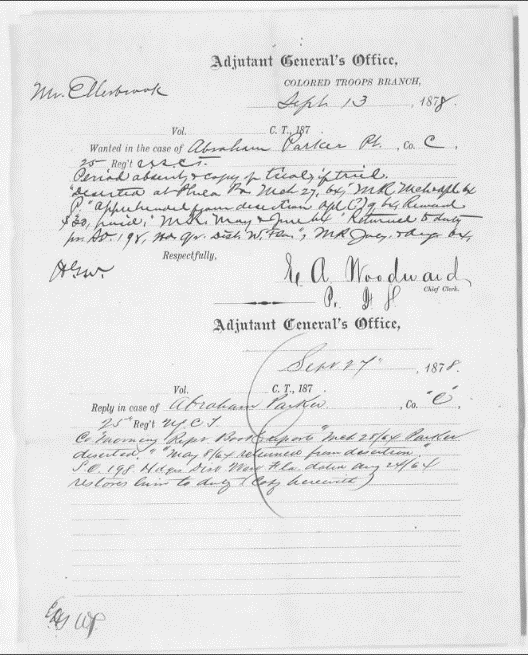 Adjutant General's Office,
COLORED TROOPS BRANCH,
Mr. Ellerbrook
Sept. 13, 1878.
Vol. C. T., 187
Wanted in the case of Abraham Parker Pt., Co. C.
25 Reg't U.S.C.T.
Period absent & copy of trial, if tried.
"Deserted at Phila Pa. Mch 27, 64," M.R. Mch & Apl 64
"Apprehended from desertion Apl (?) 9, 64, Reward
$30, paid," M.R. May & June 64 "Returned to duty
per S.O. 198, Hd Qrs. Dist. W. Fla.", M.R. July & Aug. 64,
Respectfully,
E A Woodward
Chief Clerk.
P. D H
Adjutant General's Office,
Sept 27", 1878.
Vol. C. T., 187
Reply in case of Abraham Parker, Co. "C".
25" Reg't U S C T
Co Morning Rept Book reports "Mch 28/64 Parker
deserted," "May 8/64 returned from desertion,"
S.O. 198 Hdqrs Dist West Fla. dated Aug 24/64
restores him to duty (Copy herewith)